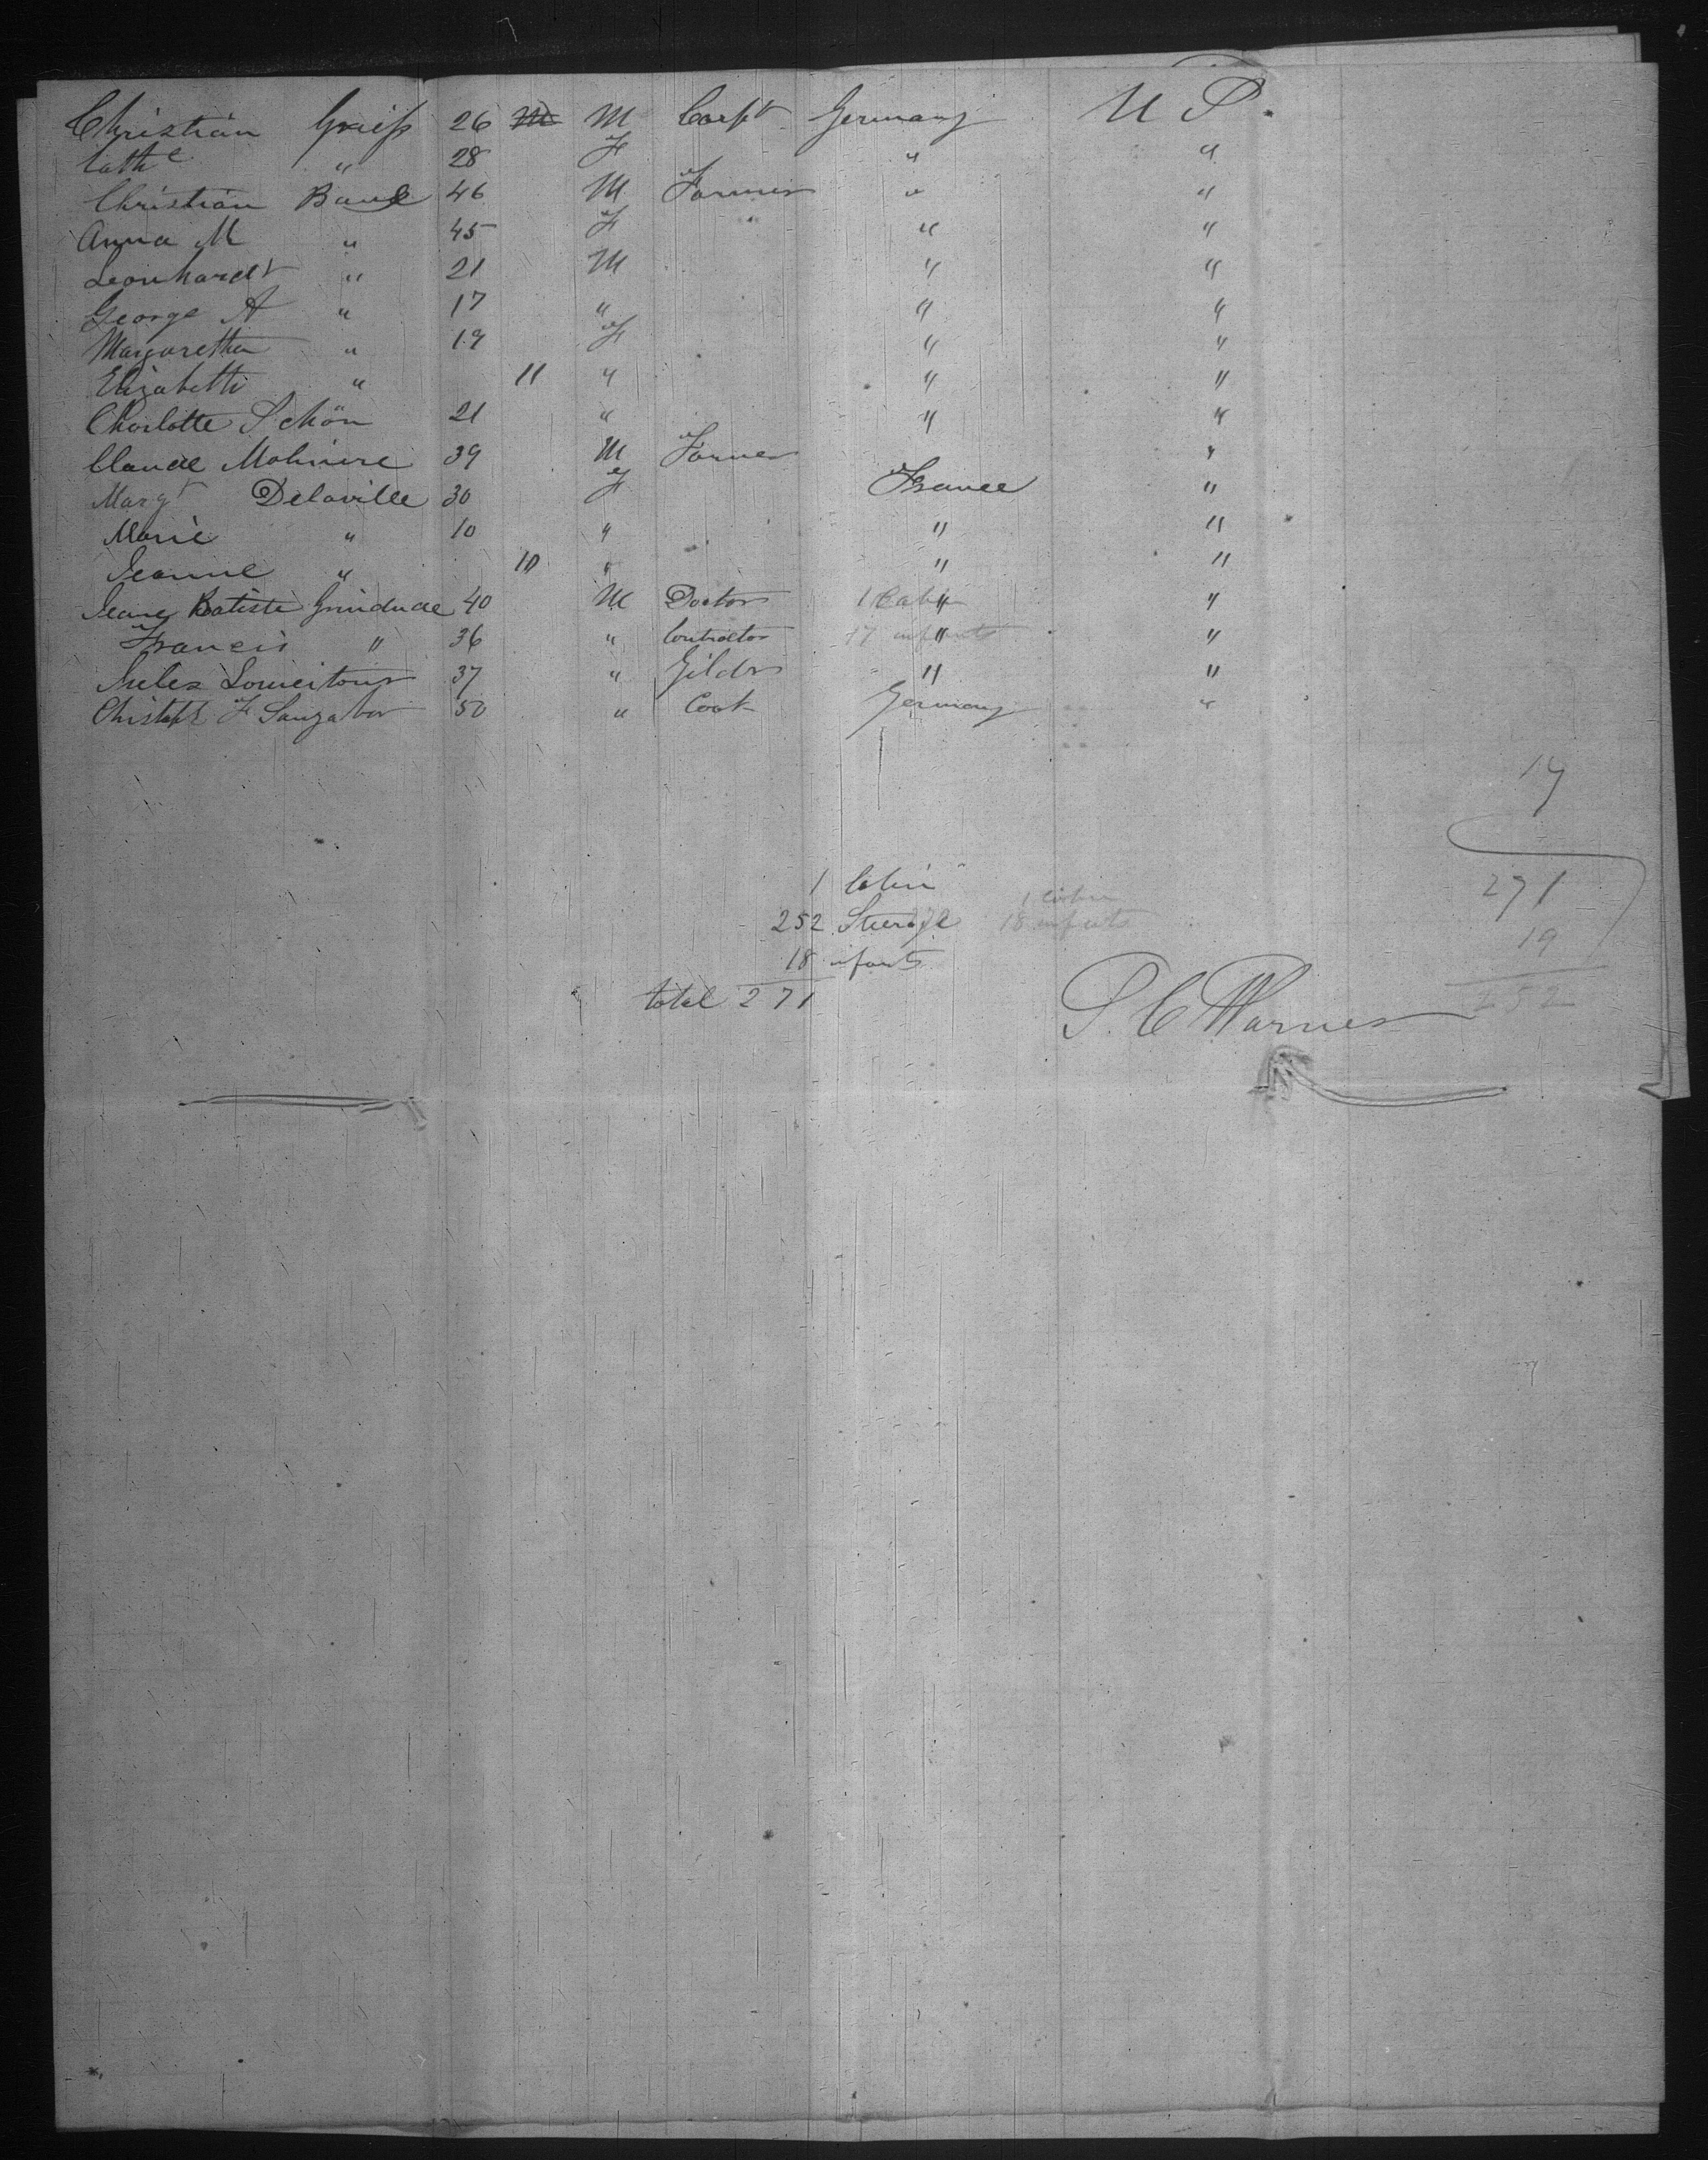 Christian Greiss 26 M M Carpt Germany U S.
Cathe " 28 F " "
Christian Baul 46 M Farmer " "
Anna M " 45 F " " "
Leonhardt " 21 M " "
George A " 17 " " "
Margaretha " 19 F " "
Elizabeth " 11 " " "
Charlotte Schön 21 " " "
Claude Moliniere 39 M Farmer "
Margt Delaville 30 F France "
Marie " 10 " " "
Jeanne " 10 " " "
Jean Batiste Grindude 40 M Doctor 1 Cabin " "
Francis " 36 " Contractor 17 infants " "
37 " Gilder " "
Christoph F 50 " Cook Germany "
17
1 Cabin 271
252 Steerage 1 Cabin
18 infants 18 infants 19
total 271 252
S. C Warner